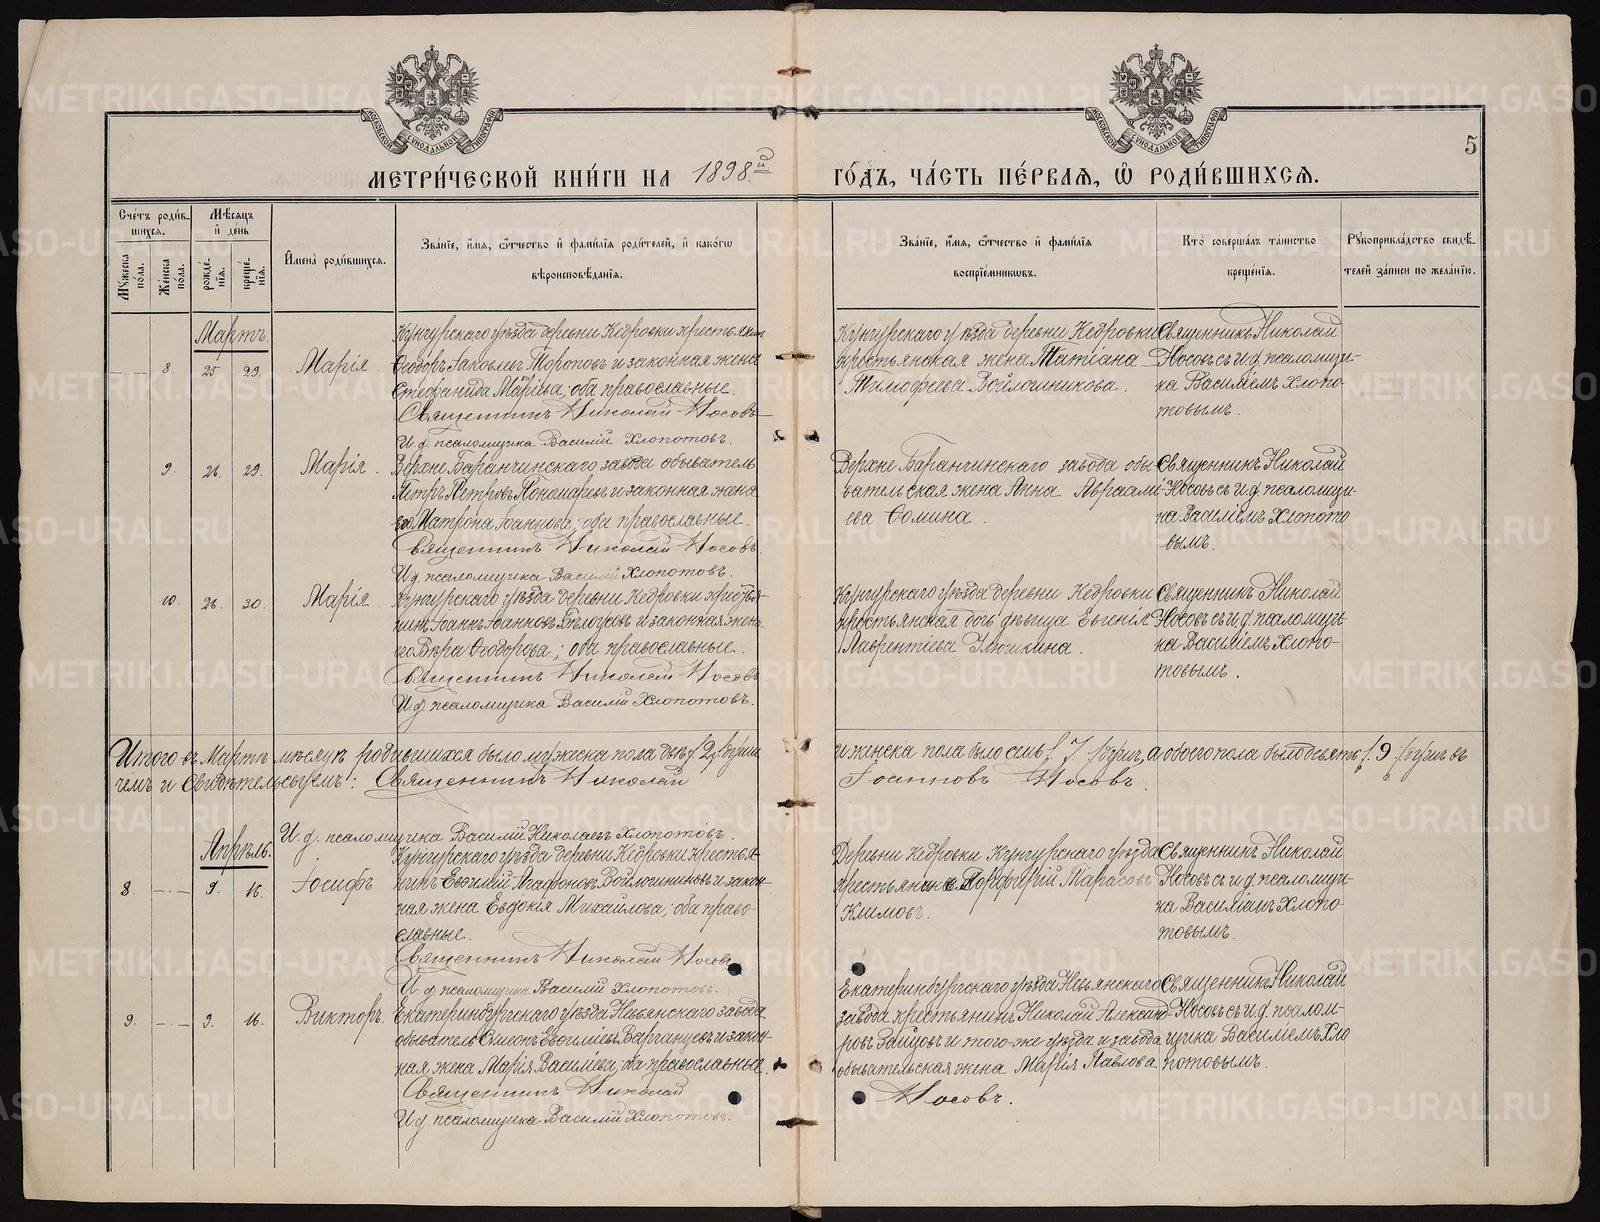 МЕТРИ́ЧЕСКОЙ КНИ́ГИ НА 1898й
ГО́ДЪ, ЧА́СТЬ ПЕ́РВАѦ, Ѡ҆ РОДИ́ВШИХСѦ.
5
Сче́тъ роди́в-
шихсѧ.
Мꙋ́жеска по́ла.
Же́нска по́ла.
Мѣ́сѧцъ и҆ де́нь
рожде́нїѧ.
креще́нїѧ.
И҆мена̀ роди́вшихсѧ.
Зва́нїе, и҆́мѧ, ѻ҆́тчество и҆ фами́лїѧ роди́телей, и҆ како́гѡ
вѣроисповѣ́данїѧ.
Зва́нїе, и҆́мѧ, ѻ҆́тчество и҆ фами́лїѧ
воспрїе́мникѡвъ.
Кто̀ соверша́лъ та́инство
креще́нїѧ.
Рꙋкоприкла́дство свидѣ́-
телей за́писи по жела́нїю.
Мартъ.
8. 25 29. Марія.
Кунгурскаго уѣзда деревни Кедровки крестьянин
Ѳеодоръ Іаковлевъ Торопов и законная жена
Стефанида; оба православные.
Священникъ Николай Носовъ
И. д. псаломщика Василій Хлопотовъ.
Кунгурскаго уѣзда деревни Кедровки
крестьянская жена Татіана
Тимофеева Войлошникова.
Священникъ Николай
Носовъ съ и. д. псаломщи-
ка Василіемъ Хлопо-
товымъ.
9. 26. 29. Марія.
Верхне Баранчинскаго завода обыватель
Петръ Петровъ Пономаревъ и законная жена
его Матрона Іоаннова; оба православные.
Священникъ Николай Носовъ
И. д. псаломщика Василій Хлопотовъ.
Верхне Баранчинскаго завода обы
вательская жена Анна Авраами
ева Сомина.
Священникъ Николай
Носовъ съ и. д. псаломщи-
ка Василіемъ Хлопото
вымъ.
10. 26. 30. Марія.
Кунгурскаго уѣзда деревни Кедровки крестья-
нинъ Іоаннъ Іоанновъ Бѣлоусовъ и законная жена
его Вѣра Ѳеодорова; оба православные.
Священникъ Николай Носовъ
И. д. псаломщика Василій Хлопотовъ.
Кунгурскаго уѣзда деревни Кедровки
крестьянская дочь дѣвица Евгенія
Лаврентіева Илюшкина.
Священникъ Николай
Носовъ съ и. д. псаломщи-
ка Василіемъ Хлопо-
товымъ.
Итого въ Мартѣ мѣсяцѣ родившихся было мужеска пола двѣ /2/ души
и женска пола было семь /7/ душъ, а обоего пола было девять /9/ душъ въ
чемъ и свидѣтельствуемъ: Священникъ Николай
Іоанновъ Носовъ.
И. д. псаломщика Василій Николаевъ Хлопотовъ.
Апрѣль.
8. 9. 16. Іосифъ
Кунгурскаго уѣзда деревни Кедровки крестья-
нинъ Евѳимій Агафоновъ Войлошниковъ и закон-
ная жена Евдокія Михайлова; оба право-
славные.
Священникъ Николай Носовъ
И. д. псаломщика Василій Хлопотовъ.
Деревни Кедровки Кунгурскаго уѣзда
крестьянинъ Порфирій Тарасовъ
Климовъ.
Священникъ Николай
Носовъ съ и. д. псаломщи-
ка Василіемъ Хлопо-
товымъ.
9. 9. 16. Викторъ.
Екатеринбургскаго уѣзда Невьянскаго завода
обыватель Симеонъ Евѳиміевъ Варганцевъ и закон-
ная жена Марія Василіева; оба православные.
Священникъ Николай
И. д. псаломщика Василій Хлопотовъ.
Екатеринбургскаго уѣзда Невьянскаго
завода крестьянинъ Николай Александ-
ровъ Зайцовъ и того-же уѣзда и завода
обывательская жена Марія Павлова.
Носовъ.
Священникъ Николай
Носовъ съ и. д. псалом-
щика Василіемъ Хло
потовымъ.